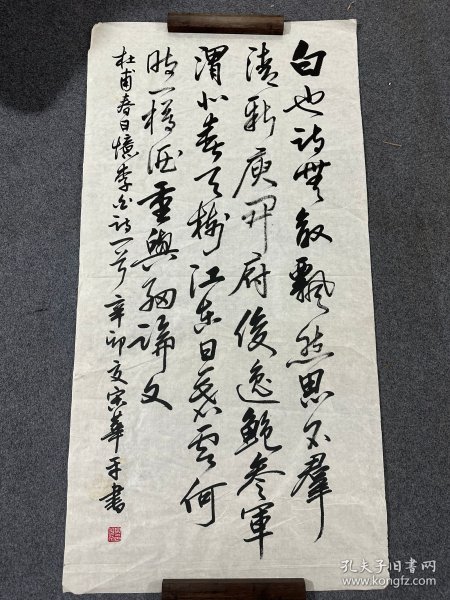 白也詩無敵飄然思不羣
清新庾開府俊逸鮑參軍
渭北春天樹江東日暮雲何
時一樽酒重與細論文
杜甫春日憶李白詩一首 辛卯夏宋華平書
孔夫子旧书网
www.kongfz.com